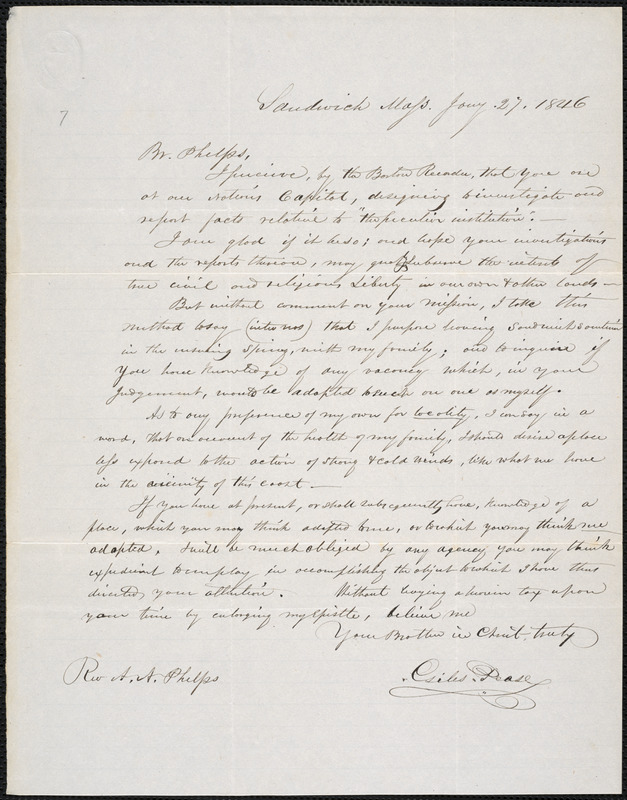 7
Sandwich Mass. Jany 27. 1846
Br. Phelps,
I perceive, by the Boston Recorder, that you are
at our Nation's Capitol, designing to investigate and
report facts relative to "the peculiar institution". —
I am glad if it be so; and hope your investigations
and the reports thereon, may greatly subserve the interests of
true civil and religious Liberty in our own & other lands —
But without comment on your mission, I take this
method to say (inter nos) that I purpose leaving Sandwich
in the ensuing Spring, with my family; and to inquire if
you have knowledge of any vacancy which, in your
Judgement, would be adapted to such an one as myself.
As to any preference of my own for locality, I can say in a
word, that on account of the health of my family, I should desire a place
less exposed to the action of strong & cold winds, like what we have
in the vicinity of this coast. —
If you have at present, or shall subsequently have, knowledge of a
place, which you may think adapted to me, or to which you may think me
adapted, I will be much obliged by any agency you may think
expedient to employ in accomplishing the object to which I have thus
directed your attention. Without laying a heavier tax upon
your time by enlarging my Epistle, believe me
Your Brother in Christ, truly
Giles Pease
Rev A. A. Phelps